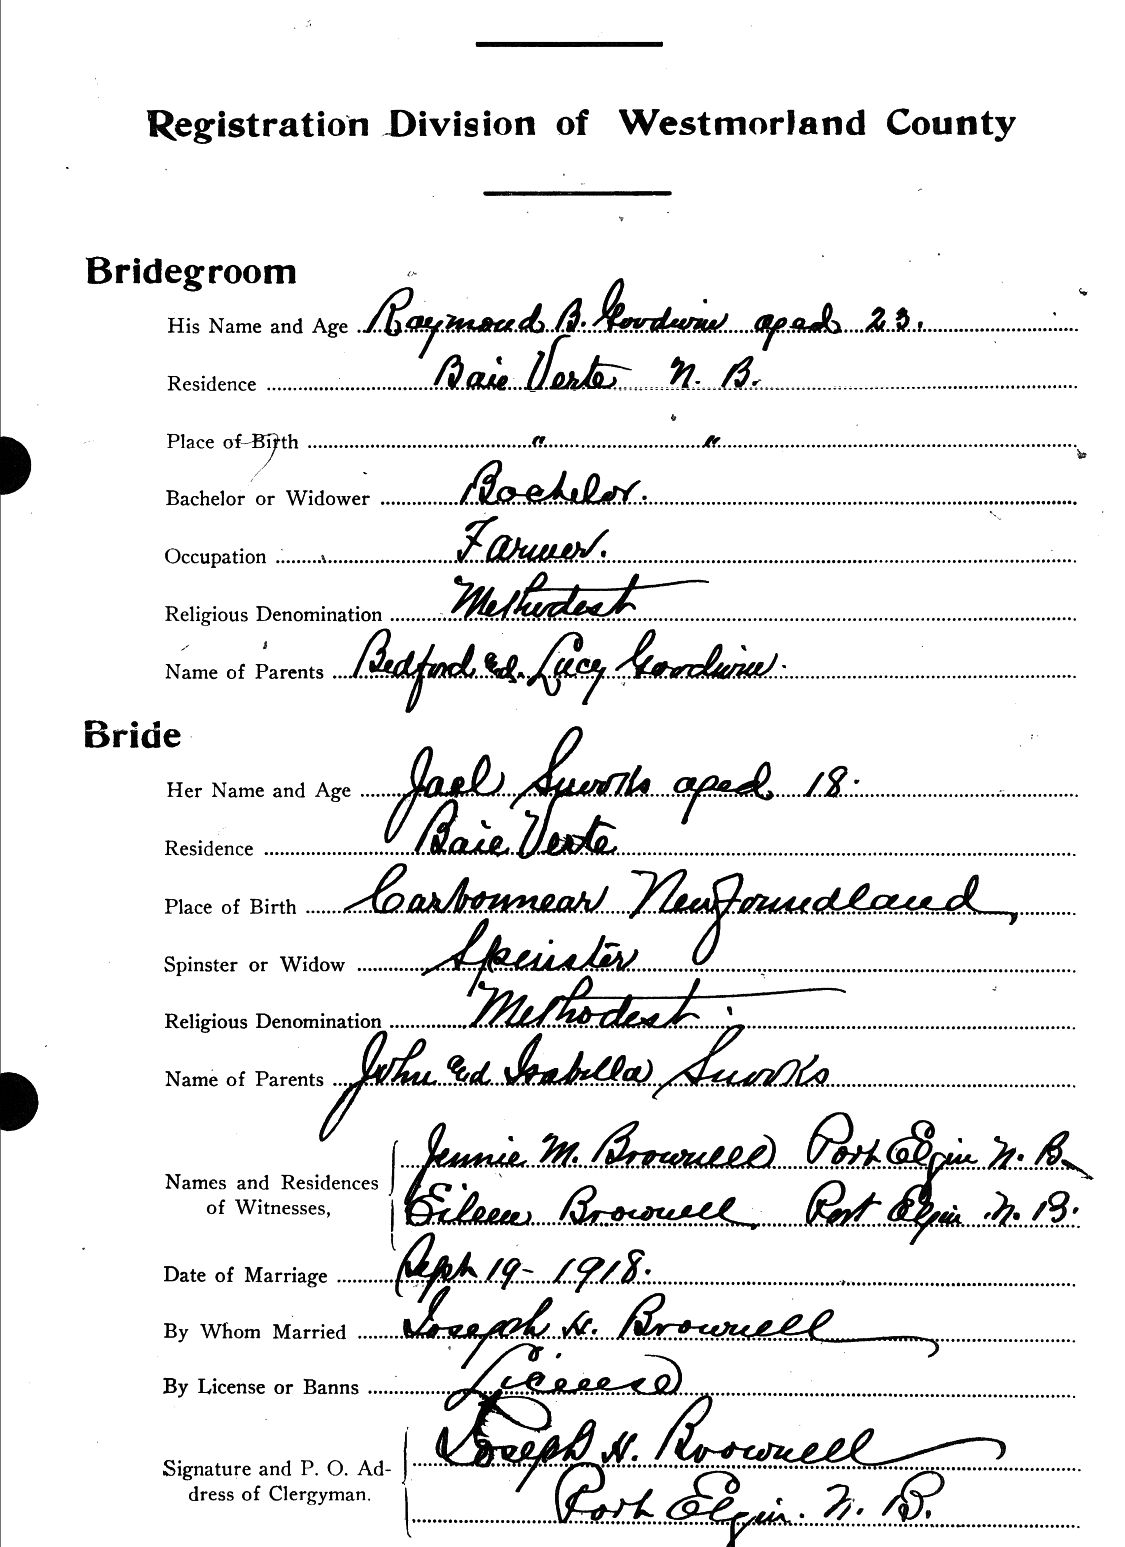 Registration Division of Westmorland County
Bridegroom
His Name and Age Raymond B. Goodwin aged 23.
Residence Baie Verte N. B.
Place of Birth " "
Bachelor or Widower Bachelor.
Occupation Farmer.
Religious Denomination Methodest
Name of Parents Bedford and Lucy Goodwin.
Bride
Her Name and Age Jael aged 18.
Residence Baie Verte
Place of Birth Carbonnear Newfoundland,
Spinster or Widow Spinster
Religious Denomination Methodest.
Name of Parents John and Isabella
Names and Residences of Witnesses, Jennie M. Brownell Port Elgin N. B.
Eileen Brownell, Port Elgin N. B.
Date of Marriage Sept 19 - 1918.
By Whom Married Joseph H. Brownell
By License or Banns License
Signature and P. O. Ad- Joseph H. Brownell
dress of Clergyman. Port Elgin. N. B.